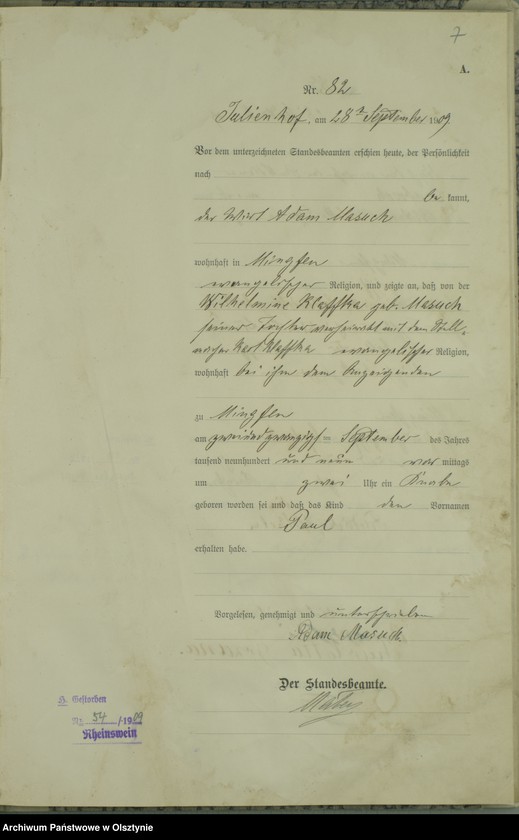 7
A.
Nr. 82
Julienhof, am 28ten September 1909
Vor dem unterzeichneten Standesbeamten erschien heute, der Persönlichkeit
nach
be kannt,
der Wirt Adam Masuch
wohnhaft in Mingfen
evangelischer Religion, und zeigte an, daß von der
Wilhelmine geb. Masuch
seiner Tochter verheiratet mit dem
Karl evangelischer Religion,
wohnhaft bei ihm dem Anzeigenden
zu Mingfen
am zweiundzwanzigsten September des Jahres
tausend neunhundert und neun vor mittags
um zwei Uhr ein Knabe
geboren worden sei und daß das Kind den Vornamen
Paul
erhalten habe.
Vorgelesen, genehmigt und unterschrieben
Adam Masuch
Der Standesbeamte.
H. Gestorben
Nr. 54 /1909
Rheinswein
Archiwum Państwowe w Olsztynie